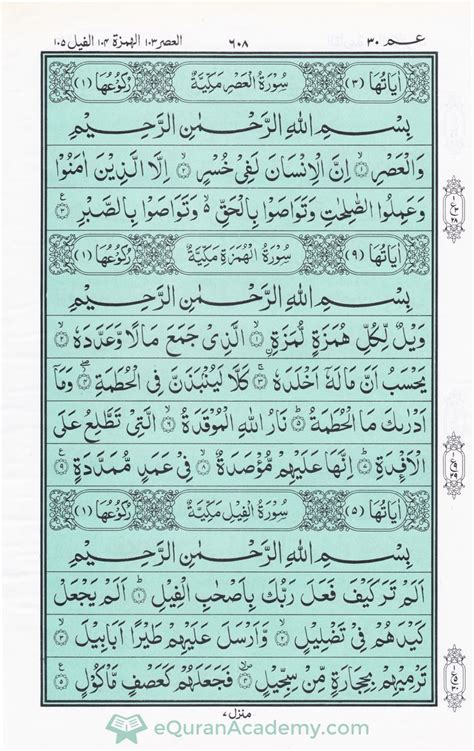 عم ٣٠ ٦٠٨ العصر ١٠٣ الهمزة ١٠٤ الفيل ١٠٥
اٰيَاتُهَا (٣) سُوْرَةُ الْعَصْرِ مَكِّيَّةٌ رُكُوْعُهَا (١)
بِسْمِ اللّٰهِ الرَّحْمٰنِ الرَّحِيْمِ
وَالْعَصْرِ ۙ‏﴿۱﴾ اِنَّ الْاِنْسَانَ لَفِيْ خُسْرٍ ۙ‏﴿۲﴾ اِلَّا الَّذِيْنَ اٰمَنُوْا
وَعَمِلُوا الصّٰلِحٰتِ وَتَوَاصَوْا بِالْحَقِّ ۙ۬ وَتَوَاصَوْا بِالصَّبْرِ ﴿۳﴾
اٰيَاتُهَا (٩) سُوْرَةُ الْهُمَزَةِ مَكِّيَّةٌ رُكُوْعُهَا (١)
بِسْمِ اللّٰهِ الرَّحْمٰنِ الرَّحِيْمِ
وَيْلٌ لِّكُلِّ هُمَزَةٍ لُّمَزَةِ ۙ‏﴿۱﴾ ۨالَّذِيْ جَمَعَ مَالًا وَّعَدَّدَهٗ ۙ‏﴿۲﴾
يَحْسَبُ اَنَّ مَالَهٗٓ اَخْلَدَهٗ ۚ‏﴿۳﴾ كَلَّا لَيُنْۢبَذَنَّ فِي الْحُطَمَةِ ۖ‏﴿۴﴾ وَمَآ
اَدْرٰىكَ مَا الْحُطَمَةُ ؕ‏﴿۵﴾ نَارُ اللّٰهِ الْمُوْقَدَةُ ۙ‏﴿۶﴾ الَّتِيْ تَطَّلِعُ عَلَى
الْاَفْـِٕدَةِ ؕ‏﴿۷﴾ اِنَّهَا عَلَيْهِمْ مُّؤْصَدَةٌ ۙ‏﴿۸﴾ فِيْ عَمَدٍ مُّمَدَّدَةٍ ﴿۹﴾
اٰيَاتُهَا (٥) سُوْرَةُ الْفِيْلِ مَكِّيَّةٌ رُكُوْعُهَا (١)
بِسْمِ اللّٰهِ الرَّحْمٰنِ الرَّحِيْمِ
اَلَمْ تَرَ كَيْفَ فَعَلَ رَبُّكَ بِاَصْحٰبِ الْفِيْلِ ؕ‏﴿۱﴾ اَلَمْ يَجْعَلْ
كَيْدَهُمْ فِيْ تَضْلِيْلٍ ۙ‏﴿۲﴾ وَّاَرْسَلَ عَلَيْهِمْ طَيْرًا اَبَابِيْلَ ۙ‏﴿۳﴾
تَرْمِيْهِمْ بِحِجَارَةٍ مِّنْ سِجِّيْلٍ ۙ‏﴿۴﴾ فَجَعَلَهُمْ كَعَصْفٍ مَّاْكُوْلٍ ﴿۵﴾
منزل ٧
eQuranAcademy.com